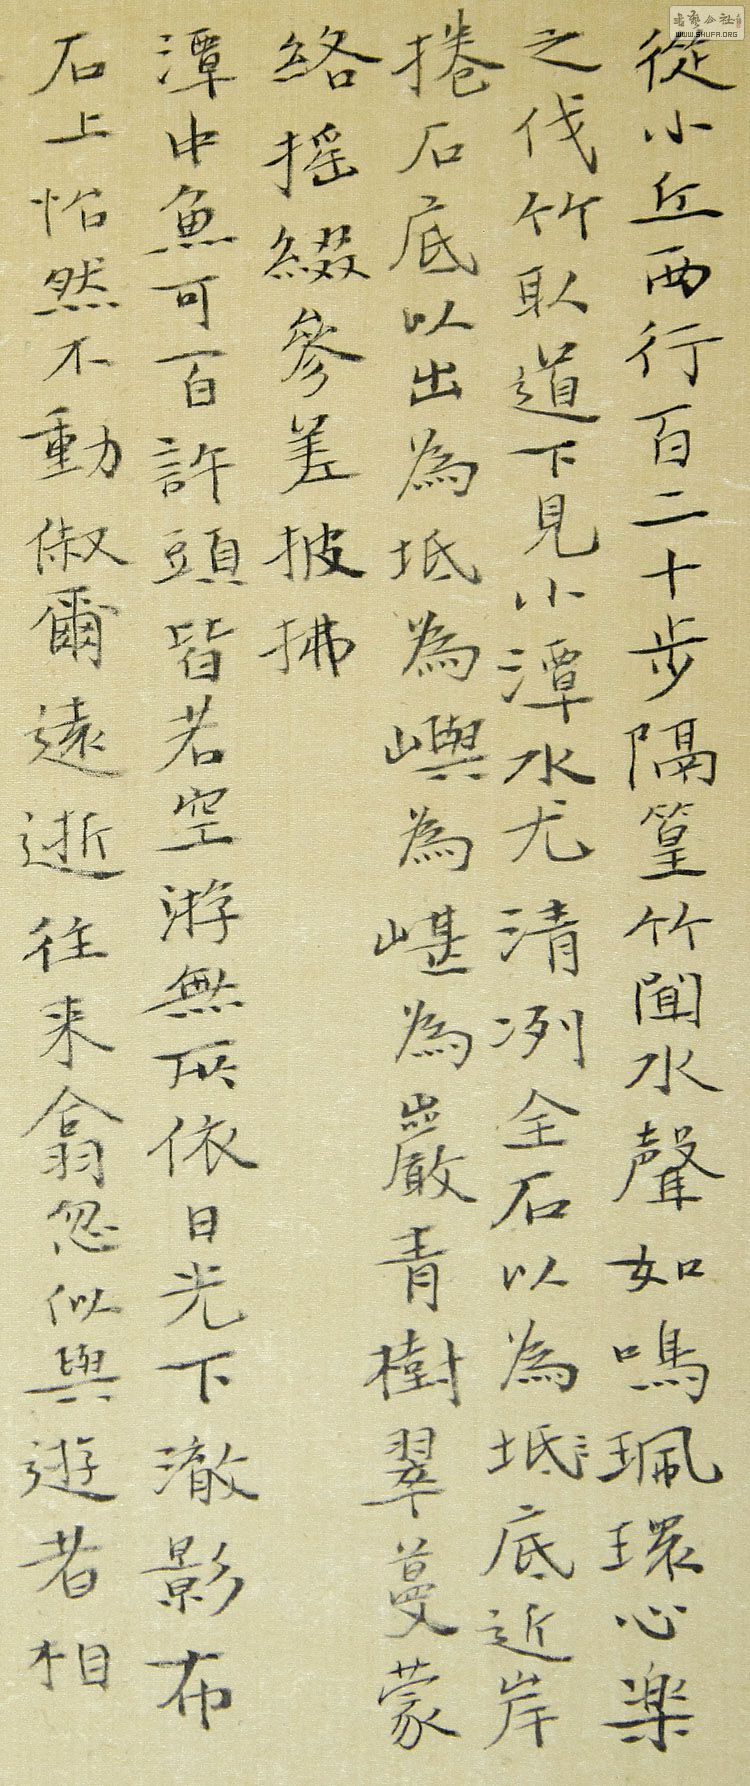 從小丘西行百二十步隔篁竹聞水聲如鳴珮環心楽
之伐竹取道下見小潭水尤清冽全石以為坻底近岸
捲石底以出為坻為嶼為嵁為巖青樹翠蔓蒙
絡搖綴參差披拂
潭中魚可百許頭皆若空游無所依日光下澈影布
石上怡然不動俶爾遠逝往来翕忽似與遊者相
书艺公社
WWW.SHUFA.ORG